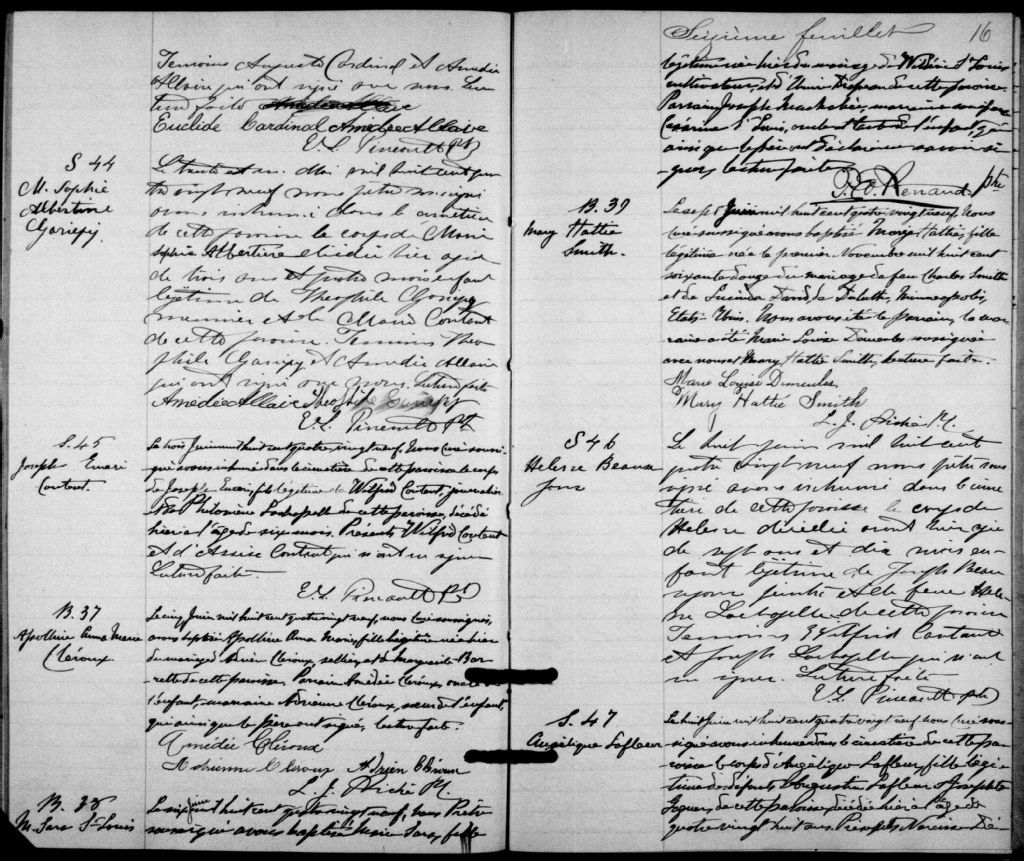 Temoins Auguste Cardinal et Amedée
Allain qui ont signé avec nous Lec
ture faite
Euclide Cardinal Amédée Allaire
E. L. Pineault Ptr
S 44
M. Sophie
Albertine
Gariépy
Le trente et un Mai mil huit cent qua
tre vingt neuf nous prêtre soussigné
avons inhumé dans le cimetière
de cette paroisse le corps de Marie
Sophie Albertine décédée hier agée
de trois ans et quatre mois enfant
légitime de Théophile Gariepy
menuisier et de Marie Contant
de cette paroisse. Temoins Theo
phile Gariepy et Amedée Allaire
qui ont signé avec nous. Lecture faite
Amédée Allaire Theophile Gariepy
E. L. Pineault Pt
S. 45
Joseph Emeri
Contant.
Le trois Juin mil huit cent quatre vingt neuf, Nous Curé soussi-
gné avons inhumé dans le cimetière de cette paroisse le corps
de Joseph Emeri, fils légitime de Wilfrid Contant, journalier
et de Philomène Lachapelle de cette paroisse, décédé
hier à l'âge de six mois. Présents Wilfrid Contant
et d'Assise Contant qui n'ont su signer
Lecture faite.
E. L. Pineault Pt
B. 37
Apolline Anna Marie
Cléroux
Le cinq Juin mil huit cent quatre vingt neuf, nous Curé soussigné,
avons baptisé Apolline Anna Marie, fille légitime née hier
du mariage d'Adrien Cléroux, sellier, et de Marguerite Bar-
rette de cette paroisse. Parrain Amédée Cléroux, oncle de
l'enfant, marraine Adrienne Cléroux, sœur de l'enfant,
qui ainsi que le père ont signé, lecture faite.
Amédée Cléroux
Adrienne Cleroux Adrien Cléroux
L. J. Piché Pt.
B. 38
M. Sara St Louis
Le six Juin mil huit cent quatre vingt neuf, nous Prêtre
soussigné avons baptisé Marie Sara, fille
Seizième feuillet 16
légitime née hier du mariage de Wilfrid St Louis
cultivateur, et d' de cette paroisse.
Parrain Joseph, marraine
Césarina St Louis, oncle et tante de l'enfant, qui
ainsi que le père ont déclaré ne savoir si-
gner, lecture faite.
Renaud ptre
B. 39
Mary Hattie
Smith.
Le sept Juin mil huit cent quatre vingt neuf, Nous
Curé soussigné avons baptisé Mary Hattie, fille
légitime née le premier Novembre mil huit cent
soixante douze du mariage de feu Charles Smith
et de Lucinda David, de Duluth, Minneapolis,
Etats-Unis. Nous avons été le parrain, la mar-
raine a été Marie Louise Demeules soussignée
avec nous et Mary Hattie Smith, lecture faite.
Marie Louise Demeules
Mary Hattie Smith
L. J. Piché Pt.
S 46
Helesse Beausé
jour
Le huit juin mil huit cent
quatre vingt neuf nous prêtre sous
signé avons inhumé dans le cime
tière de cette paroisse le corps de
Helesse décédée avant hier agée
de sept ans et dix mois en-
fant légitime de Joseph Beau
sejour et de feue Hele
sse Lachapelle de cette paroisse
Temoins Wilfrid Contant
et Joseph Lachapelle qui n'ont
su signer. Lecture faite
E. L. Pineault ptr
S. 47
Angélique Lafleur
Le huit Juin mil huit cent quatre vingt neuf nous Curé sous-
signé avons inhumé dans le cimetière de cette pa-
roisse le corps d'Angélique Lafleur, fille légi-
time des défunts Augustin Lafleur et Josephte
de cette paroisse, décédée hier à l'âge de
quatre vingt huit ans. Présents Narcisse Dé-